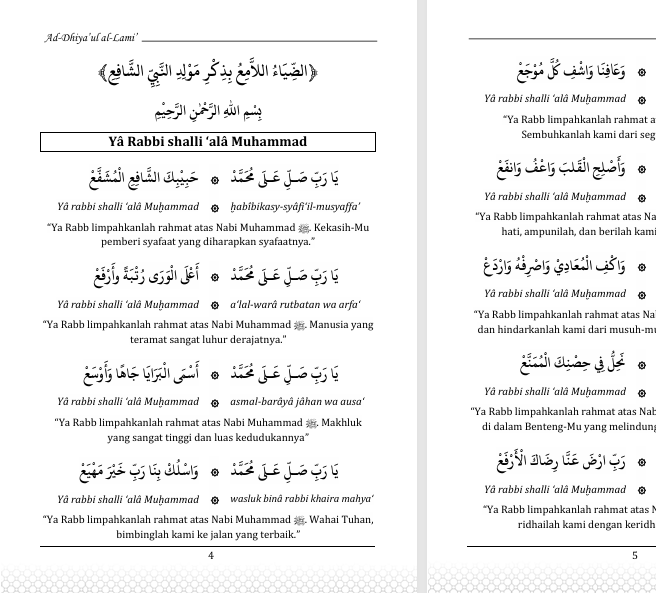 Ad-Dhiya'ul al-Lami'
﴿الضِّيَاءُ اللاَّمِعُ بِذِكْرِ مَوْلِدِ النَّبِيِّ الشَّافِعِ﴾
بِسْمِ اللهِ الرَّحْمٰنِ الرَّحِيْمِ
Yâ Rabbi shalli ‘alâ Muhammad
يَا رَبِّ صَـلِّ عَـلَى مُحَمَّدْ ۞ حَبِيْبِكَ الشَّافِعِ الْمُشَفَّعْ
Yâ rabbi shalli ‘alâ Muḥammad ۞ ḥabîbikasy-syâfi‘il-musyaffa‘
“Ya Rabb limpahkanlah rahmat atas Nabi Muhammad ﷺ. Kekasih-Mu
pemberi syafaat yang diharapkan syafaatnya.”
يَا رَبِّ صَـلِّ عَـلَى مُحَمَّدْ ۞ أَعْلَى الْوَرَى رُتْبَةً وأَرْفَعْ
Yâ rabbi shalli ‘alâ Muḥammad ۞ a‘lal-warâ rutbatan wa arfa‘
“Ya Rabb limpahkanlah rahmat atas Nabi Muhammad ﷺ. Manusia yang
teramat sangat luhur derajatnya.”
يَا رَبِّ صَـلِّ عَـلَى مُحَمَّدْ ۞ أَسْمَى الْبَرَايَا جَاهًا وَأَوْسَعْ
Yâ rabbi shalli ‘alâ Muḥammad ۞ asmal-barâyâ jâhan wa ausa‘
“Ya Rabb limpahkanlah rahmat atas Nabi Muhammad ﷺ. Makhluk
yang sangat tinggi dan luas kedudukannya”
يَا رَبِّ صَـلِّ عَـلَى مُحَمَّدْ ۞ وَاسْلُكْ بِنَا رَبِّ خَيْرَ مَهْيَعْ
Yâ rabbi shalli ‘alâ Muḥammad ۞ wasluk binâ rabbi khaira mahya‘
“Ya Rabb limpahkanlah rahmat atas Nabi Muhammad ﷺ. Wahai Tuhan,
bimbinglah kami ke jalan yang terbaik.”
4
۞ وَعَافِنَا وَاشْفِ كُلَّ مُوْجَعْ
Yâ rabbi shalli ‘alâ Muḥammad ۞
“Ya Rabb limpahkanlah rahmat
Sembuhkanlah kami dari
۞ وَأَصْلِحِ الْقَلْبَ وَاعْفُ وَانْفَعْ
Yâ rabbi shalli ‘alâ Muḥammad ۞
“Ya Rabb limpahkanlah rahmat atas
hati, ampunilah, dan berilah
۞ وَاكْفِ الْمُعَادِيْ وَاصْرِفْهُ وَارْدَعْ
Yâ rabbi shalli ‘alâ Muḥammad ۞
“Ya Rabb limpahkanlah rahmat atas
dan hindarkanlah kami dari
۞ نَحِلُّ فِي حِصْنِكَ الْمُمَنَّعْ
Yâ rabbi shalli ‘alâ Muḥammad ۞
“Ya Rabb limpahkanlah rahmat atas
di dalam Benteng-Mu yang
۞ رَبِّ ارْضَ عَنَّا رِضَاكَ الْأَرْفَعْ
Yâ rabbi shalli ‘alâ Muḥammad ۞
“Ya Rabb limpahkanlah rahmat atas
ridhailah kami dengan
5